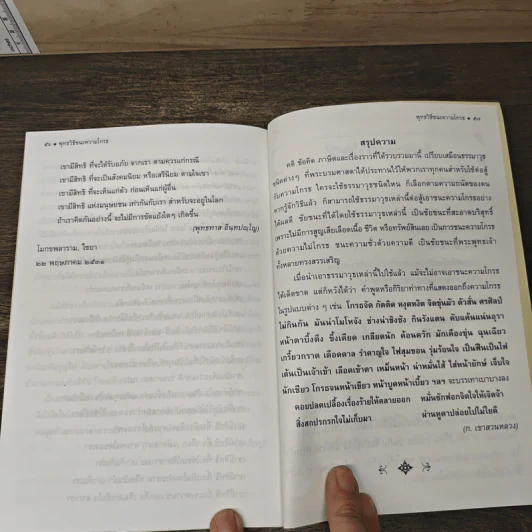 ๕๖ • พุทธวิธีชนะความโกรธ
เขามีสิทธิ ที่จะได้รับอภัย จากเรา ตามควรแก่กรณี
เขามีสิทธิ ที่จะเป็นสังคมนิยม หรือเสรีนิยม ตามใจเขา
เขามีสิทธิ ที่จะเห็นแก่ตัว ก่อนเห็นแก่ผู้อื่น
เขามีสิทธิ แห่งมนุษยชน เท่ากันกับเรา สำหรับจะอยู่ในโลก
ถ้าเราคิดกันอย่างนี้ จะไม่มีการขัดแย้งใดๆ เกิดขึ้น
(พุทธทาส อินทปญฺโญ)
โมกขพลาราม, ไชยา
๒๒ พฤษภาคม ๒๕๓๑
พุทธวิธีชนะความโกรธ • ๕๗
สรุปความ
คติ ข้อคิด ภาษิตและเรื่องราวที่ได้รวบรวมมานี้ เปรียบเสมือนธรรมาวุธ
ชนิดต่างๆ ที่พระบรมศาสดาได้ประทานไว้ให้พวกเราทุกคนสำหรับใช้ต่อสู้
กับความโกรธ ใครจะใช้ธรรมาวุธชนิดไหน ก็เลือกตามความถนัดของตน
หากรู้จักวิธีแล้ว ก็สามารถใช้ธรรมาวุธเหล่านี้ต่อสู้เอาชนะความโกรธอย่าง
ได้ผลดี ชัยชนะที่ได้โดยใช้ธรรมาวุธเหล่านี้ เป็นชัยชนะที่สะอาดบริสุทธิ์
เพราะไม่มีการสูญเสียเลือดเนื้อ ชีวิต หรือทรัพย์สินเลย เป็นการชนะความโกรธ
ด้วยความไม่โกรธ ชนะความชั่วด้วยความดี เป็นชัยชนะที่พระพุทธเจ้า
ทั้งหลายทรงสรรเสริญ
เมื่อนำเอาธรรมาวุธเหล่านี้ไปใช้แล้ว แม้จะไม่อาจเอาชนะความโกรธ
ได้เด็ดขาด แต่ก็หวังได้ว่า คำพูดหรือกิริยาท่าทางที่แสดงออกถึงความโกรธ
ในรูปแบบต่าง ๆ เช่น โกรธจัด กัดติด หงุดหงิด จิตขุ่นมัว ตัวสั่น ตรศิลป์
ไม่กินกัน มันน่าโมโหจัง ช่างน่าชิงชัง กินรังแตน คับแค้นแน่นอุรา
หน้าตาบึ้งตึง ขึ้งเคียด เกลียดนัก ค้อนควัก มักเคืองขุ่น ฉุนเฉียว
เกรี้ยวกราด เดือดดาล รำคาญใจ ไฟสุมขอน รุ่มร้อนใจ เป็นฟืนเป็นไฟ
เต้นเป็นเจ้าเข้า เลือดเข้าตา เหม็นหน้า น่าหมั่นไส้ ใส่หน้ายักษ์ เจ็บใจ
นักเชียว โกรธจนหน้าเขียว หน้าบูดหน้าเบี้ยว ฯลฯ จะบรรเทาเบาบางลง
คอยปลดเปลื้องเรื่องร้ายให้คลายออก หมั่นซักฟอกจิตใจให้เจิดจ้า
สิ่งสกปรกรกใจไม่เก็บมา ผ่านหูตาปล่อยไปไม่ไยดี
(ก. เขาสวนหลวง)